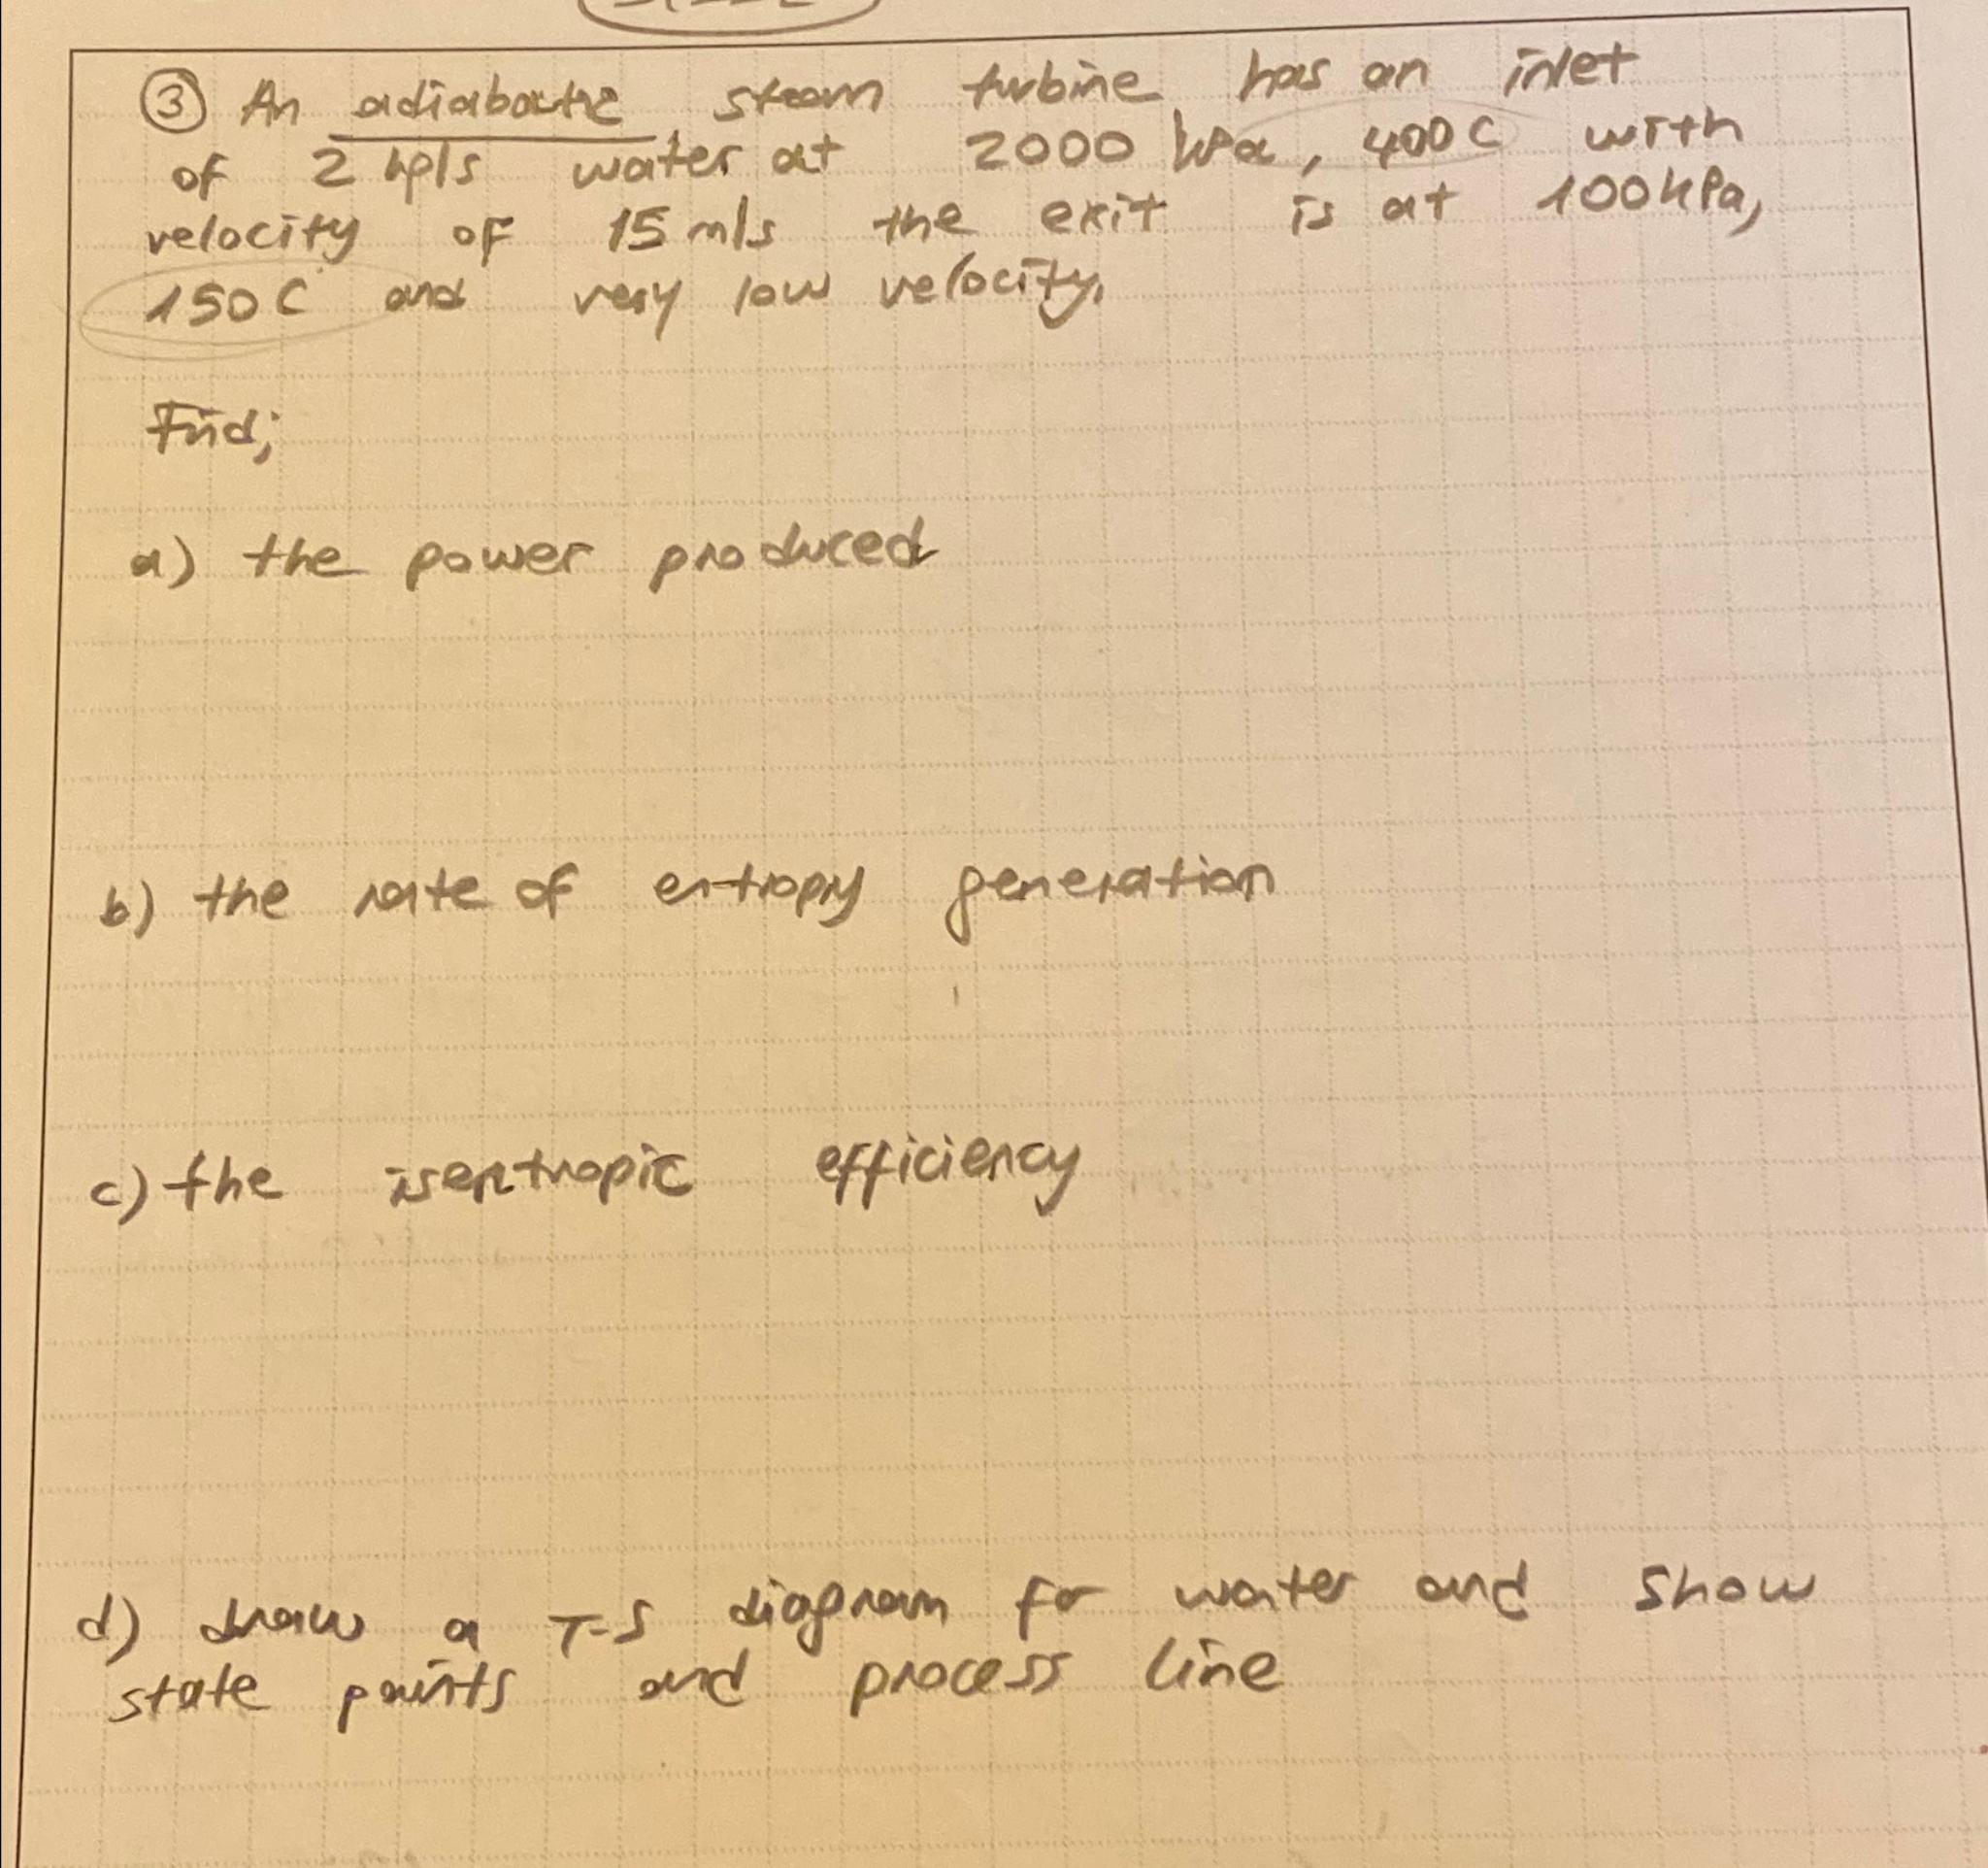 ③ An adiabatic steam turbine has an inlet
of 2 kg/s water at 2000 kPa, 400 C with
velocity of 15 m/s the exit is at 100 kPa,
150 C and very low velocity.
Find;
a) the power produced
b) the rate of entropy generation
c) the isentropic efficiency
d) draw a T-S diagram for water and show
state points and process line